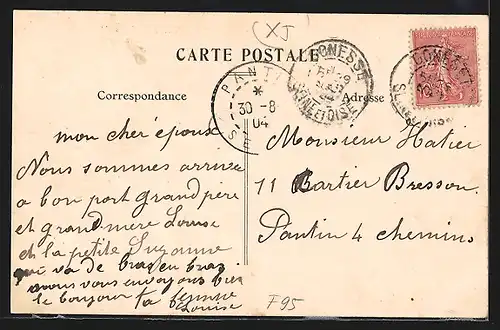 (XJ
CARTE POSTALE
Correspondance
Adresse
PANTIN
*
30-8
04
SEINE
GONESSE
SEINE ET OISE
GONESSE
mon cher époux
Nous sommes arrivé
a bon port grand père
et grand mère Louise
et la petite Suzanne
qui va de bras en bras
nous vous envoyons bien
le bonjour ta femme
Louise
Monsieur Hatier
11 Cartier Bresson
Pantin 4 chemins
F95